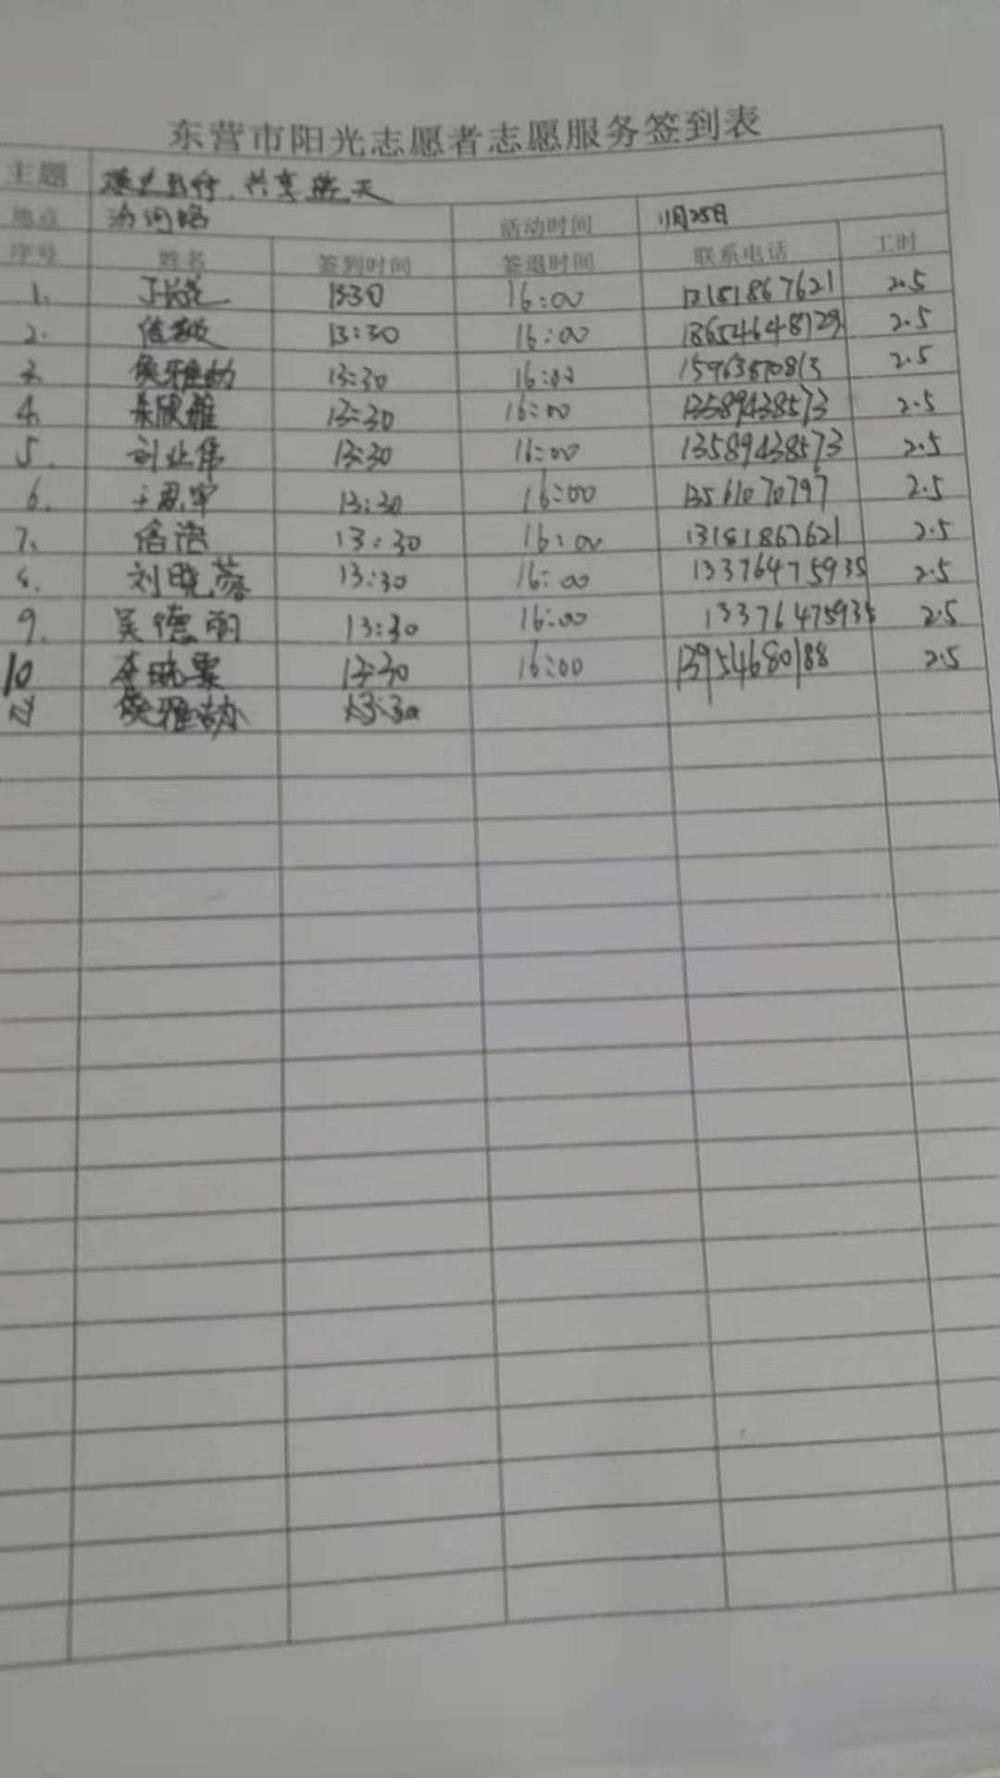 东营市阳光志愿者志愿服务签到表
主题 共享蓝天
地点 汾河路 活动时间 11月25日
序号 姓名 签到时间 签退时间 联系电话 工时
1. 13:30 16:00 13181867621 2.5
2. 13:30 16:00 18654648729 2.5
3. 侯雅劼 13:30 16:00 15963870813 2.5
4. 13:30 16:00 13589438573 2.5
5. 刘业伟 13:30 16:00 13589438573 2.5
6. 13:30 16:00 13561070797 2.5
7. 信浩 13:30 16:00 13181867621 2.5
8. 刘晓蓉 13:30 16:00 13376475935 2.5
9. 吴德丽 13:30 16:00 13376475935 2.5
10 李晓 13:30 16:00 13954680188 2.5
侯雅劼 13:30